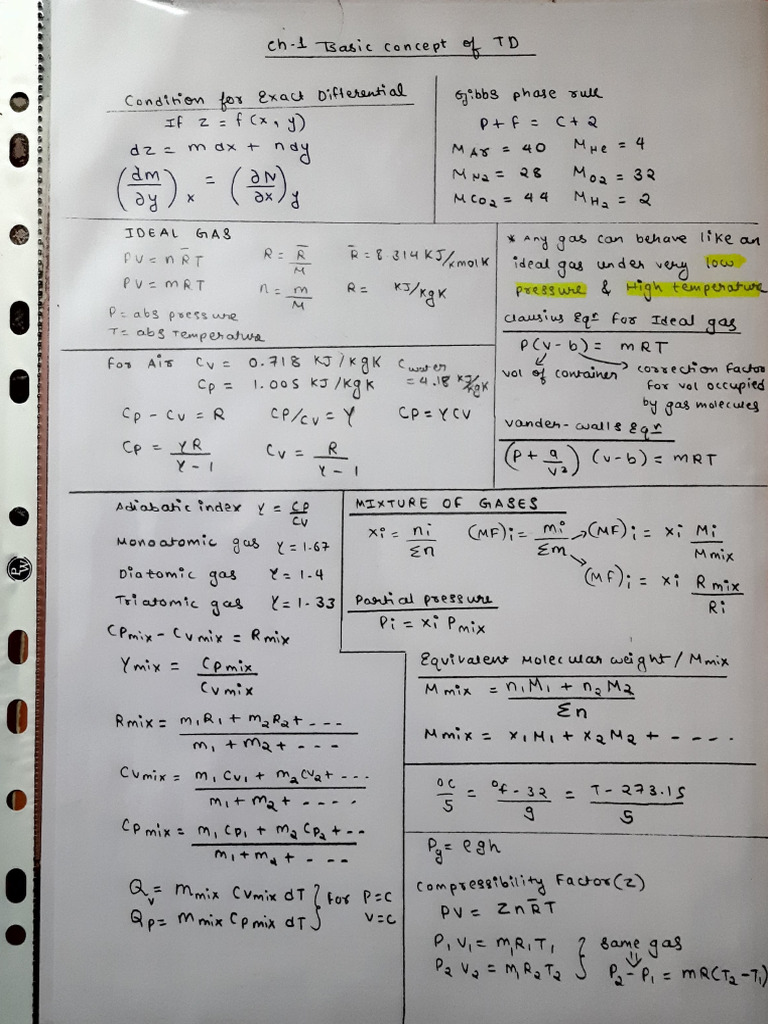 Ch-1 Basic concept of TD
Condition for Exact Differential
If z = f(x, y)
dz = m dx + n dy
(dm/∂y)x = (∂N/∂x)y
Gibbs phase rule
P + f = C + 2
M Ar = 40 M He = 4
M N2 = 28 M O2 = 32
M CO2 = 44 M H2 = 2
IDEAL GAS
PV = nR̄T R = R̄/M R̄ = 8.314 KJ/KmolK
PV = mRT n = m/M R = KJ/KgK
P = abs pressure
T = abs Temperature
* Any gas can behave like an
ideal gas under very low
pressure & High temperature
Clausius Eqn for Ideal gas
P(V-b) = mRT
vol of container correction factor
for vol occupied
by gas molecules
Vander-walls Eqn
(P + a/V2) (V-b) = mRT
For Air Cv = 0.718 KJ/KgK Cwater
Cp = 1.005 KJ/KgK = 4.18 KJ/KgK
Cp - Cv = R Cp/Cv = γ Cp = γCv
Cp = γR/γ-1 Cv = R/γ-1
Adiabatic index γ = Cp/Cv
Monoatomic gas γ = 1.67
Diatomic gas γ = 1.4
Triatomic gas γ = 1.33
Cpmix - Cvmix = Rmix
γmix = Cpmix/Cvmix
Rmix = m1R1 + m2R2 + ---/m1 + m2 + ---
Cvmix = m1Cv1 + m2Cv2 + ---/m1 + m2 + ----
Cpmix = m1Cp1 + m2Cp2 + --/m1 + m2 + ---
Qv = mmix Cvmix dT } for P=C
Qp = mmix Cpmix dT } V=C
MIXTURE OF GASES
xi = ni/Σn (MF)i = mi/Σm → (MF)i = xi Mi/Mmix
(MF)i = xi Rmix/Ri
Partial pressure
Pi = xi Pmix
Equivalent Molecular weight / Mmix
Mmix = n1M1 + n2M2/Σn
Mmix = x1M1 + x2M2 + ----
°C/5 = °f-32/9 = T-273.15/5
Pg = ρgh
Compressibility Factor(Z)
PV = ZnR̄T
P1V1 = m1R1T1 } same gas
P2V2 = m1R2T2 } P2-P1 = mR(T2-T1)
PW